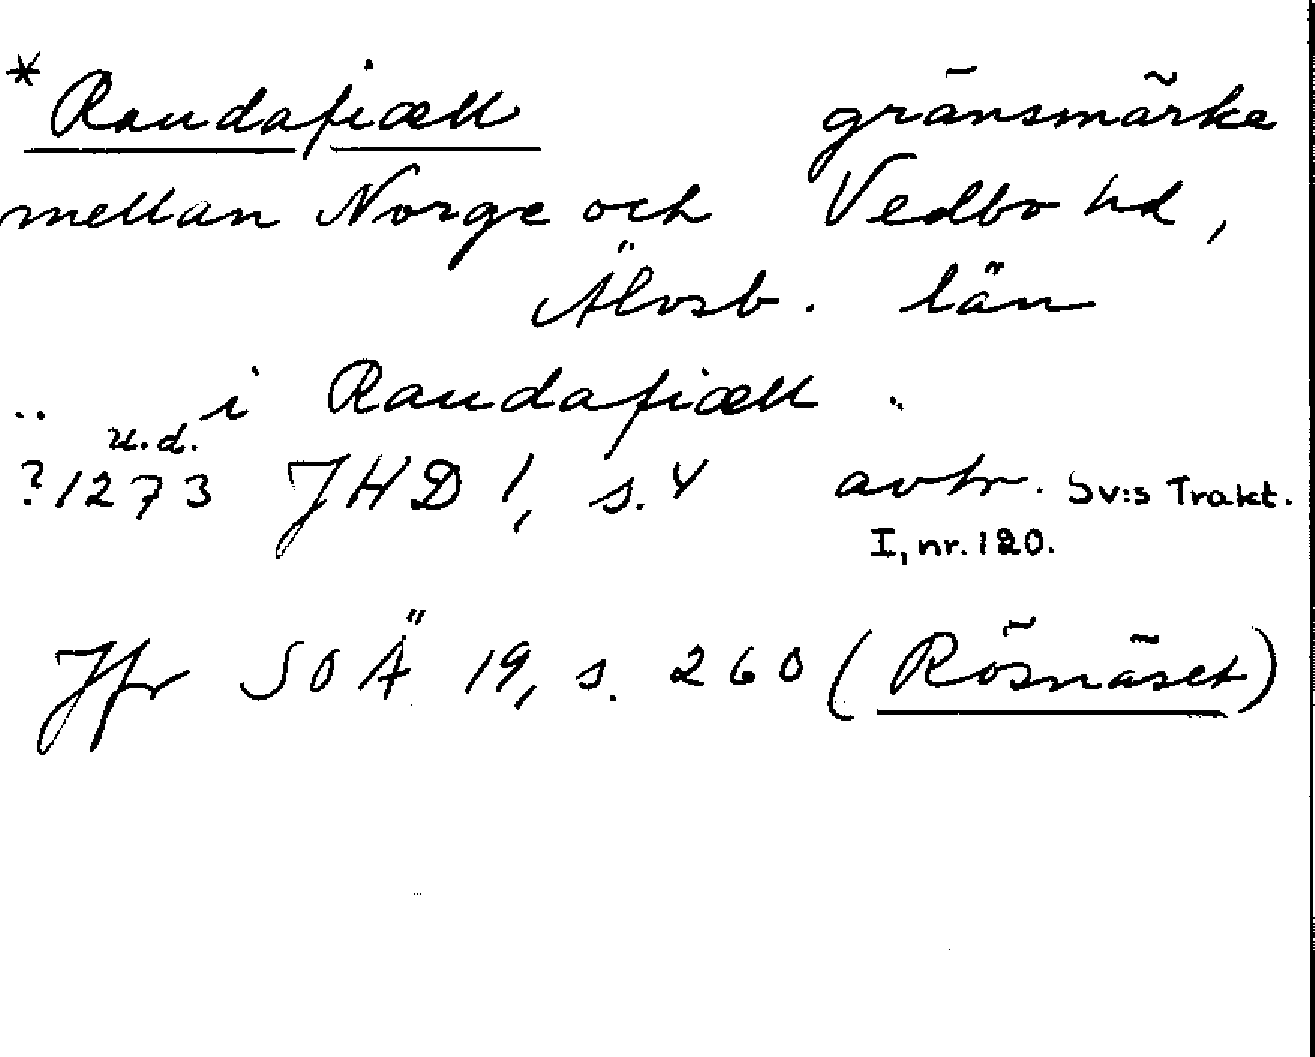 *Raudafiæll gränsmärke
mellan Norge och Vedbo hd,
Älvsb. län
.. i Raudafiæll.
u.d.
?1273 JHD 1, s. 4 avtr. Sv:s Trakt.
I, nr. 120.
Jfr SOÄ 19, s. 260 (Rösnäset)